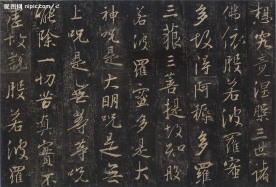 nipic.com/c
想究竟涅槃三世諸
佛依般若波羅蜜
多故得阿耨多羅
三藐三菩提故知般
若波羅蜜多是大
神咒是大明咒是無
上咒是無等等咒
能除一切苦真實不
虛故說般若波羅